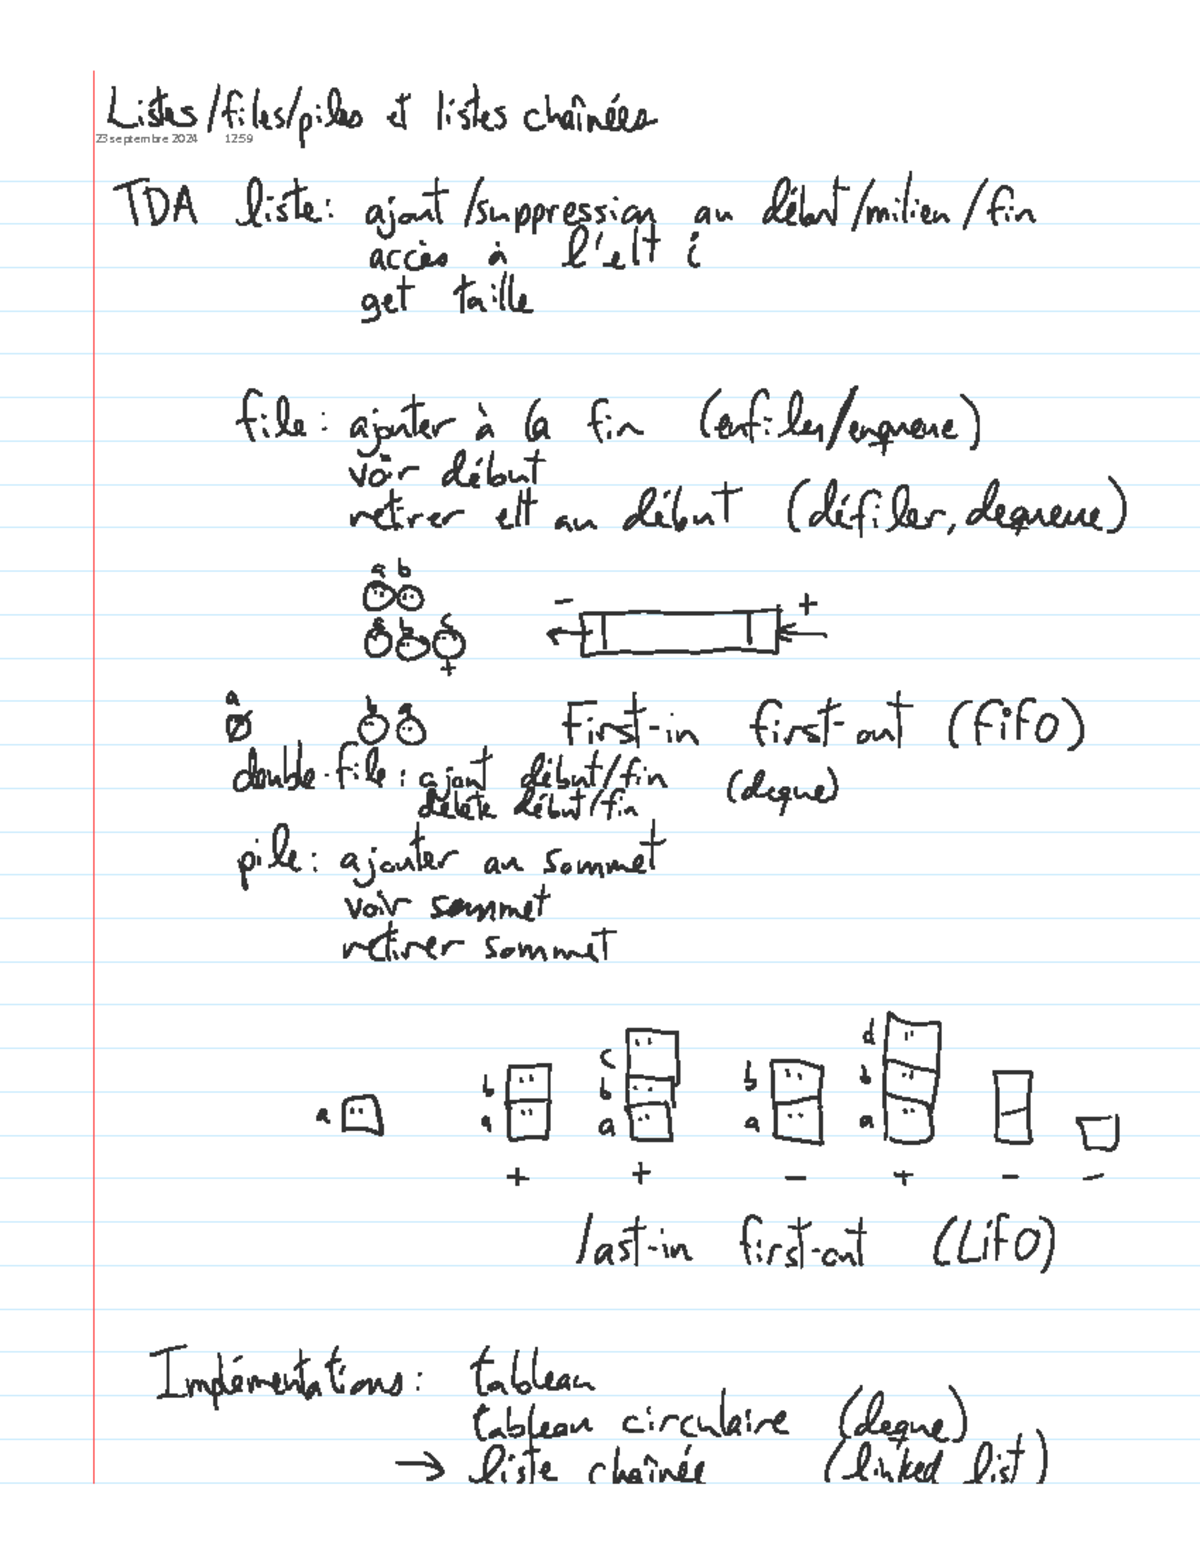 Listes/files/piles et listes chaînées
23 septembre 2024 12:59
TDA liste: ajout/suppression au début/milieu/fin
accès à l'elt i
get taille
file: ajouter à la fin (enfiler/enqueue)
voir début
retirer elt au début (défiler, dequeue)
a b
- +
a b c
+
a b a
First-in first-out (FifO)
double-file: ajout début/fin (deque)
delete début/fin
pile: ajouter au sommet
voir sommet
retirer sommet
a b a c b a b a d b a
+ + - + - -
last-in first-out (LifO)
Implémentations: tableau
tableau circulaire (deque)
→ liste chaînée (linked list)